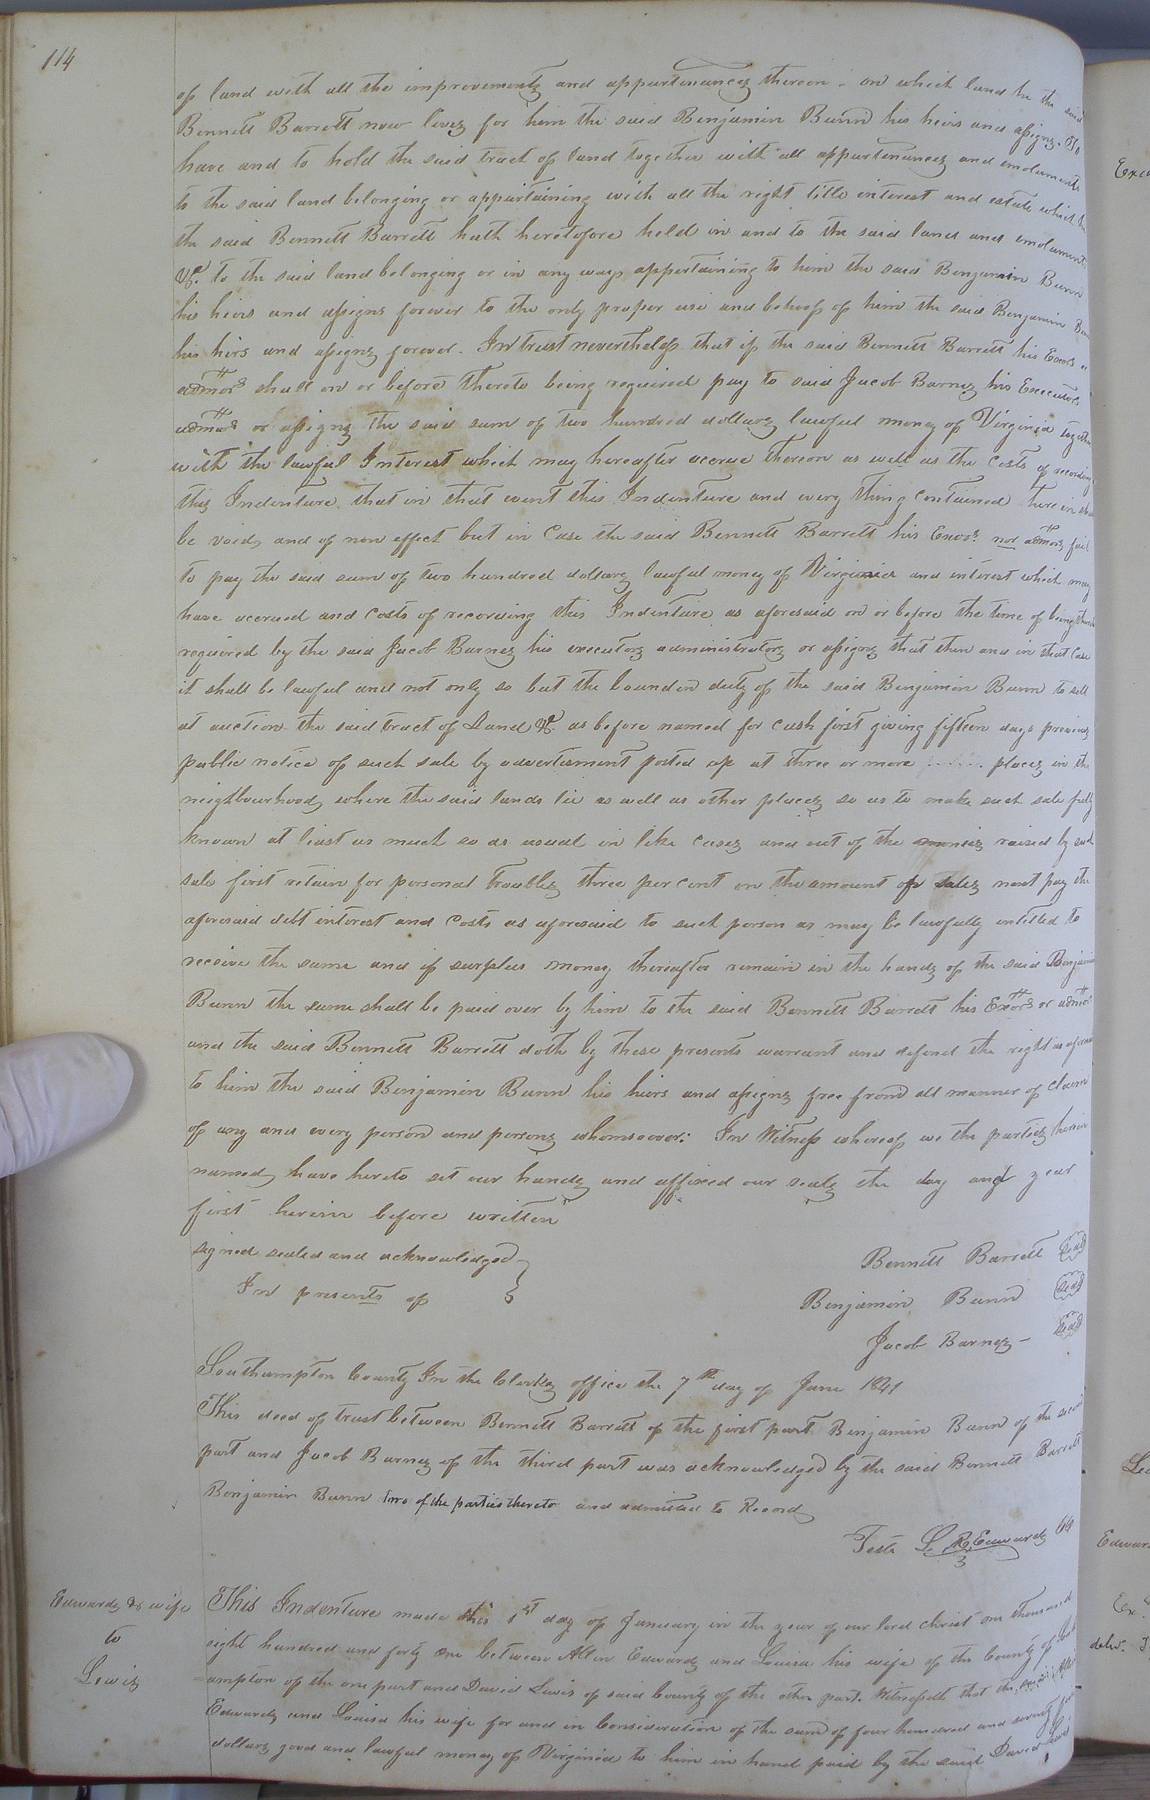 114
of land with all the improvements and appurtenances thereon - on which land he the said
Bennett Barrett now lives for him the said Benjamin Bunn his heirs and assigns. To
have and to hold the said tract of land together with all appurtenances and emoluments
to the said land belonging or appirtaining with all the right title interest and estate which he
the said Bennett Barrett hath heretofore held in and to the said land and emoluments
&c. to the said land belonging or in any ways appertaining to him the said Benjamin Bunn
his heirs and assigns forever to the only proper use and behoof of him the said Benjamin Bunn
his hirs and assigns forever. In trust nevertheless that if the said Bennett Barrett his Exors or
admors shall on or before thereto being required pay to said Jacob Barnes his Executors
admors or assigns the said sum of two hundred dollars lawful money of Virginia together
with the lawful Interest which may hereafter accrue thereon as well as the Costs of recording
this Indenture that in that event this Indenture and every thing contained therein shall
be void, and of non effect but in Case the said Bennett Barrett his Exors. not admors fail
to pay the said sum of two hundred dollars lawful money of Virginia and interest which may
have accrued and costs of recording this Indenture as aforesaid on or before the time of being thereto
required by the said Jacob Barnes his executors administrators or assigns that then and in that Case
it shall be lawful and not only so but the bounden duty of the said Benjamin Bunn to sell
at auction the said tract of Land &c. as before named for cash first giving fifteen days previous
public notice of such sale by advertisment posted up at three or more places in the
neighbourhood, where the said lands lie as well as other places so as to make such sale fully
known at least as much so as usual in like cases and out of the monies raised by such
sale first retain for personal troubles three per cent on the amount of sales next pay the
aforesaid debt interest and Costs as aforesaid to such person as may be lawfully intitled to
receive the same and if surplus money thereafter remain in the hands of the said Benjamin
Bunn the same shall be paid over by him to the said Bennett Barrett his Exors or admors
and the said Bennett Barrett doth by these presents warrant and defend the right as aforesaid
to him the said Benjamin Bunn his heirs and assigns free from all manner of claim
of any and every person and persons whomsoever: In Witness whereof we the parties herein
named, have hereto set our hands and affixed our seals the day and year
first herein before written
signed sealed and acknowledged
In presents of
Bennett Barrett Seal
Benjamin Bunn Seal
Jacob Barnes - Seal
Southampton County In the Clerks office the 7th day of June 1841
This deed of trust between Bennett Barrett of the first part Benjamin Bunn of the second
part and Jacob Barnes of the third part was acknowledged by the said Bennett Barrett
Benjamin Bunn two of the parties thereto and admitted to Record
Teste L. R. Edwards Clk
Edwards & wife
to
Lewis
This Indenture made this 1st day of January in the year of our lord Christ one thousand
eight hundred and forty one between Allen Edwards and Louisa his wife of the County of South
ampton of the one part and David Lewis of said County of the other part. Witnesseth that the said Allen
Edwards and Louisa his wife for and in Consideration of the sum of four hundred and seventy
dollars good and lawful money of Virginia to him in hand paid by the said David Lewis
Edwar
Ex.